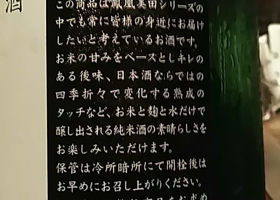 酒
この商品は鳳凰美田シリーズの
中でも常に皆様の身近にお届け
したいと考えているお酒です。
お米の甘みをベースとしキレの
ある後味、日本酒ならではの
四季折々で変化する熟成の
タッチなど、お米と麹と水だけで
醸し出される純米酒の素晴らしさを
お楽しみいただけます。
保管は冷所暗所にて開栓後は
お早めにお召し上がりください。